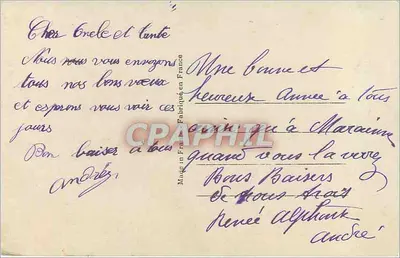 Cher Oncle et tante
Nous vous envoyons
tous nos bons vœux
et esprons vous voir ces
jours
Bon baiser a tous
andré
Made in France Fabriqué en France
Une bonne et
heureuse année à tous
ainsi qu'à Marainne
quand vous la verrez
Bons Baisers
de nous trois
Renée Alphonse
andré
CPAPHIL